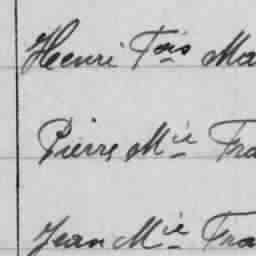 Henri Fois Ma
Pierre Mie Fra
Jean Mie Fra